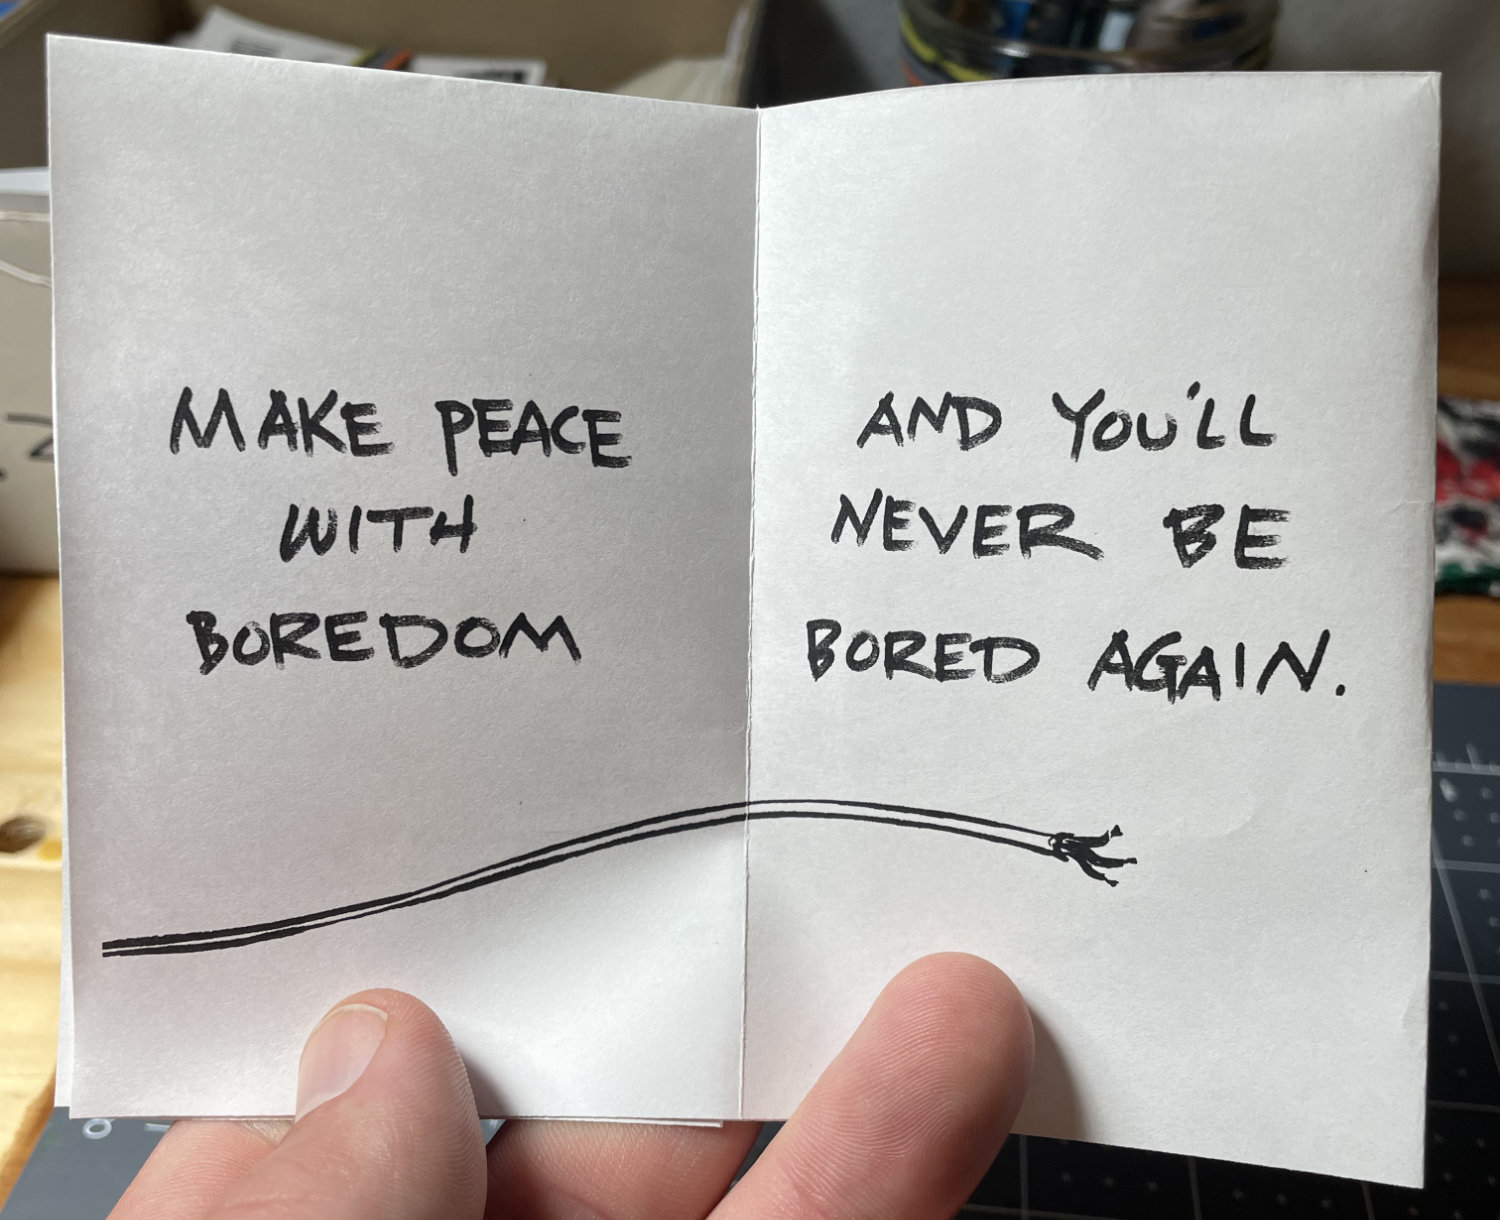 MAKE PEACE
WITH
BOREDOM
AND YOU'LL
NEVER BE
BORED AGAIN.